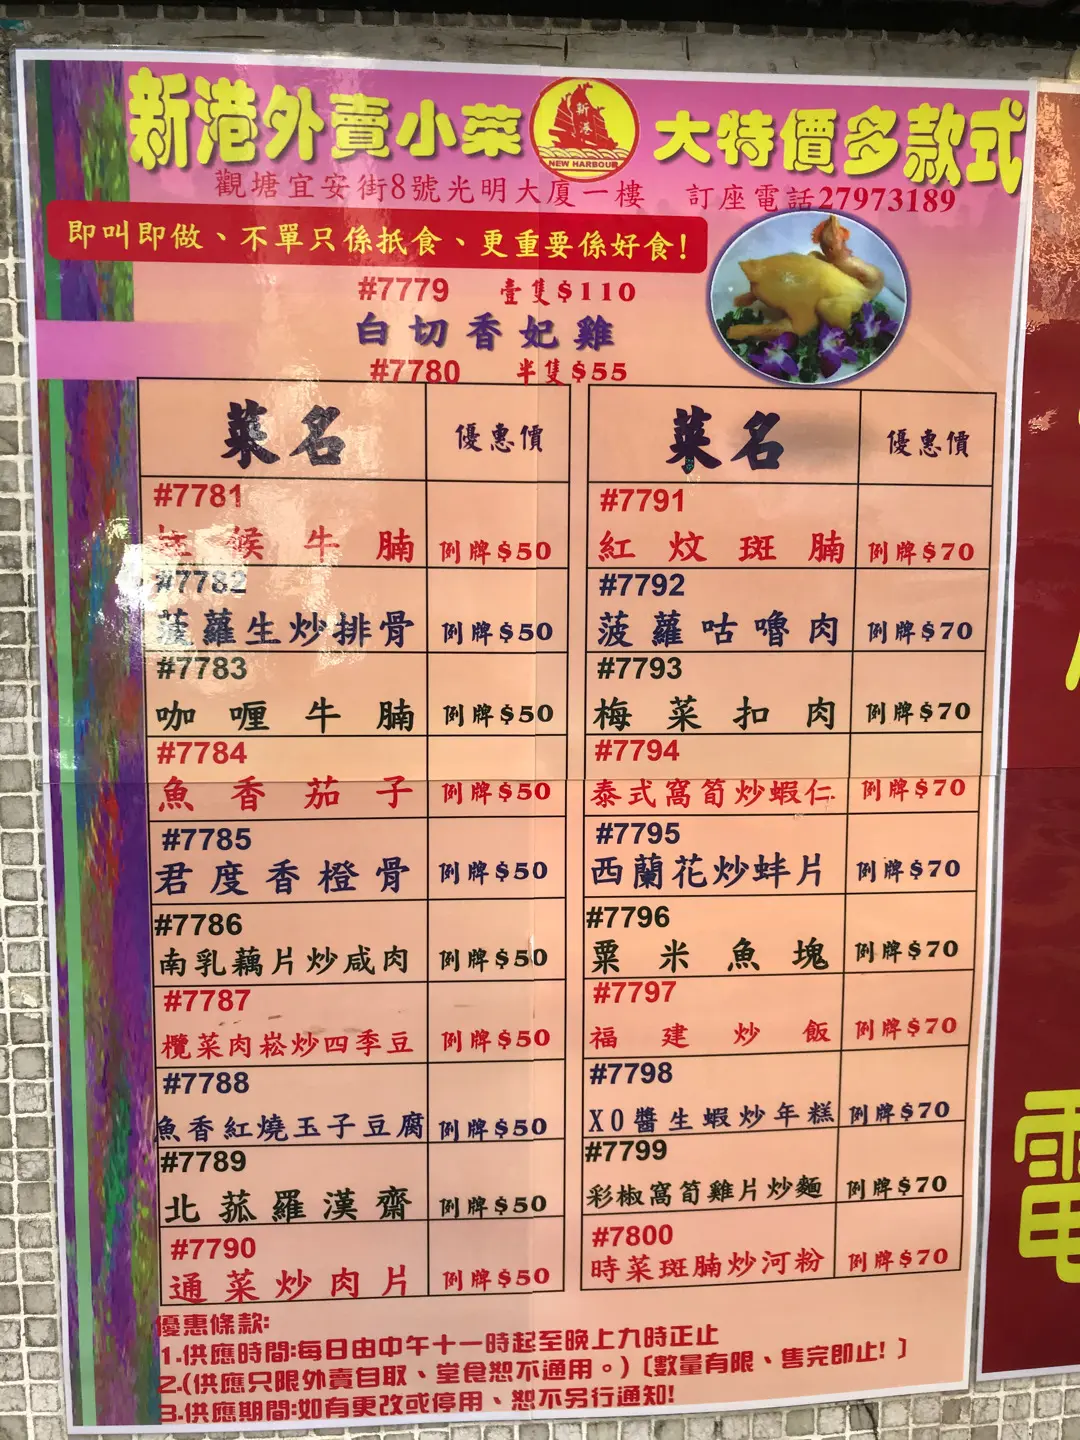 新港外賣小菜 新港 NEW HARBOUR 大特價多款式
觀塘宜安街8號光明大厦一樓 訂座電話27973189
即叫即做、不單只係抵食、更重要係好食!
#7779 壹隻$110
白切香妃雞
#7780 半隻$55
菜名 優惠價
#7781
柱候牛腩 例牌$50
#7782
菠蘿生炒排骨 例牌$50
#7783
咖喱牛腩 例牌$50
#7784
魚香茄子 例牌$50
#7785
君度香橙骨 例牌$50
#7786
南乳藕片炒咸肉 例牌$50
#7787
欖菜肉崧炒四季豆 例牌$50
#7788
魚香紅燒玉子豆腐 例牌$50
#7789
北菰羅漢齋 例牌$50
#7790
通菜炒肉片 例牌$50
菜名 優惠價
#7791
紅炆斑腩 例牌$70
#7792
菠蘿咕嚕肉 例牌$70
#7793
梅菜扣肉 例牌$70
#7794
泰式窩筍炒蝦仁 例牌$70
#7795
西蘭花炒蚌片 例牌$70
#7796
粟米魚塊 例牌$70
#7797
福建炒飯 例牌$70
#7798
XO醬生蝦炒年糕 例牌$70
#7799
彩椒窩筍雞片炒麵 例牌$70
#7800
時菜斑腩炒河粉 例牌$70
優惠條款:
1.供應時間:每日由中午十一時起至晚上九時正止
2.(供應只限外賣自取、堂食恕不通用。)〔數量有限、售完即止!〕
3.供應期間:如有更改或停用、恕不另行通知!
電